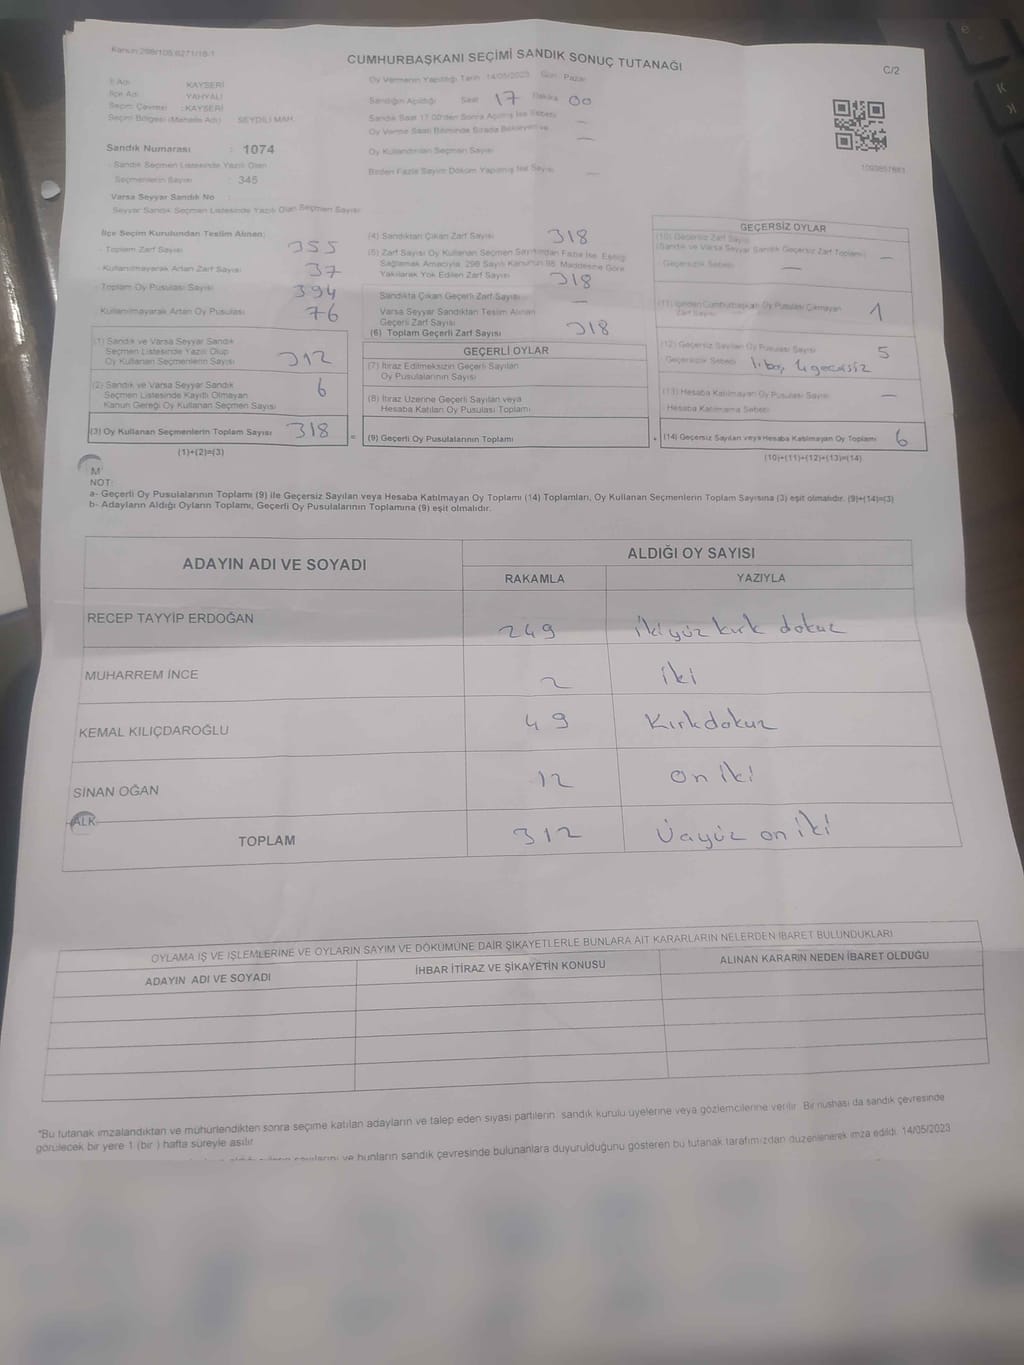 Kanun:298/105,6271/18-1
CUMHURBAŞKANI SEÇİMİ SANDIK SONUÇ TUTANAĞI
C/2
İl Adı : KAYSERİ
İlçe Adı : YAHYALI
Seçim Çevresi : KAYSERİ
Seçim Bölgesi (Mahalle Adı) : SEYDİLİ MAH.
Oy Vermenin Yapıldığı Tarih : 14/05/2023 Gün : Pazar
Sandığın Açıldığı Saat 17 Dakika 00
Sandık Saat 17:00'den Sonra Açılmış İse Sebebi —
Oy Verme Saati Bitiminde Sırada Bekleyen ve
Oy Kullandırılan Seçmen Sayısı —
Birden Fazla Sayım Döküm Yapılmış İse Sayısı —
Sandık Numarası : 1074
Sandık Seçmen Listesinde Yazılı Olan
Seçmenlerin Sayısı : 345
Varsa Seyyar Sandık No
Seyyar Sandık Seçmen Listesinde Yazılı Olan Seçmen Sayısı
İlçe Seçim Kurulundan Teslim Alınan:
- Toplam Zarf Sayısı 355
- Kullanılmayarak Artan Zarf Sayısı 37
Toplam Oy Pusulası Sayısı 394
Kullanılmayarak Artan Oy Pusulası 76
(1) Sandık ve Varsa Seyyar Sandık
Seçmen Listesinde Yazılı Olup
Oy Kullanan Seçmenlerin Sayısı 312
(2) Sandık ve Varsa Seyyar Sandık
Seçmen Listesinde Kayıtlı Olmayan
Kanun Gereği Oy Kullanan Seçmen Sayısı 6
(3) Oy Kullanan Seçmenlerin Toplam Sayısı 318
(1)+(2)=(3)
(4) Sandıktan Çıkan Zarf Sayısı 318
(5) Zarf Sayısı Oy Kullanan Seçmen Sayısından Fazla İse, Eşitliği
Sağlamak Amacıyla, 298 Sayılı Kanunun 98. Maddesine Göre
Yakılarak Yok Edilen Zarf Sayısı
Sandıkta Çıkan Geçerli Zarf Sayısı 318
Varsa Seyyar Sandıktan Teslim Alınan
Geçerli Zarf Sayısı —
(6) Toplam Geçerli Zarf Sayısı 318
GEÇERLİ OYLAR
(7) İtiraz Edilmeksizin Geçerli Sayılan
Oy Pusulalarının Sayısı
(8) İtiraz Üzerine Geçerli Sayılan veya
Hesaba Katılan Oy Pusulası Toplamı
= (9) Geçerli Oy Pusulalarının Toplamı
GEÇERSİZ OYLAR
(10) Geçersiz Zarf Sayısı
(Sandık ve Varsa Seyyar Sandık Geçersiz Zarf Toplamı) —
Geçersizlik Sebebi —
(11) İçinden Cumhurbaşkanı Oy Pusulası Çıkmayan
Zarf Sayısı 1
(12) Geçersiz Sayılan Oy Pusulası Sayısı 5
Geçersizlik Sebebi 1 boş, 4 geçersiz
(13) Hesaba Katılmayan Oy Pusulası Sayısı —
Hesaba Katılmama Sebebi
+ (14) Geçersiz Sayılan veya Hesaba Katılmayan Oy Toplamı 6
(10)+(11)+(12)+(13)=(14)
M
NOT:
a- Geçerli Oy Pusulalarının Toplamı (9) ile Geçersiz Sayılan veya Hesaba Katılmayan Oy Toplamı (14) Toplamları, Oy Kullanan Seçmenlerin Toplam Sayısına (3) eşit olmalıdır. (9)+(14)=(3)
b- Adayların Aldığı Oyların Toplamı, Geçerli Oy Pusulalarının Toplamına (9) eşit olmalıdır.
ADAYIN ADI VE SOYADI
ALDIĞI OY SAYISI
RAKAMLA YAZIYLA
RECEP TAYYİP ERDOĞAN 249 ikiyüz kırk dokuz
MUHARREM İNCE 2 iki
KEMAL KILIÇDAROĞLU 49 Kırkdokuz
SİNAN OĞAN 12 on iki
ALK
TOPLAM 312 Üçyüz on iki
OYLAMA İŞ VE İŞLEMLERİNE VE OYLARIN SAYIM VE DÖKÜMÜNE DAİR ŞİKAYETLERLE BUNLARA AİT KARARLARIN NELERDEN İBARET BULUNDUKLARI
ADAYIN ADI VE SOYADI İHBAR İTİRAZ VE ŞİKAYETİN KONUSU ALINAN KARARIN NEDEN İBARET OLDUĞU
"Bu tutanak imzalandıktan ve mühürlendikten sonra seçime katılan adayların ve talep eden siyasi partilerin, sandık kurulu üyelerine veya gözlemcilerine verilir. Bir nüshası da sandık çevresinde
görülecek bir yere 1 (bir ) hafta süreyle asılır.
ve bunların sandık çevresinde bulunanlara duyurulduğunu gösteren bu tutanak tarafımızdan düzenlenerek imza edildi. 14/05/2023